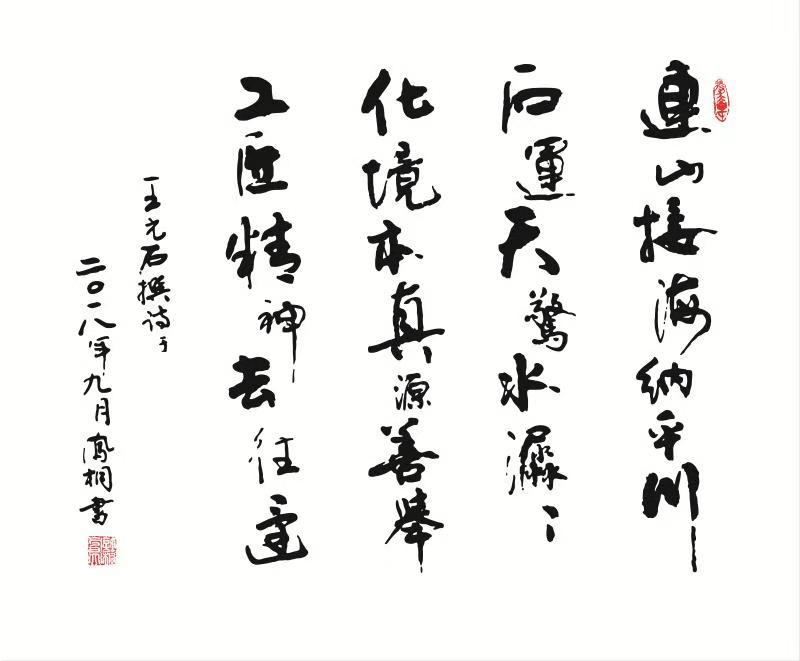 連山接海納平川
石運天驚水潺〻
化境本真源善舉
工匠精神去往還
王元石撰詩于
二〇一八年九月鳳桐書